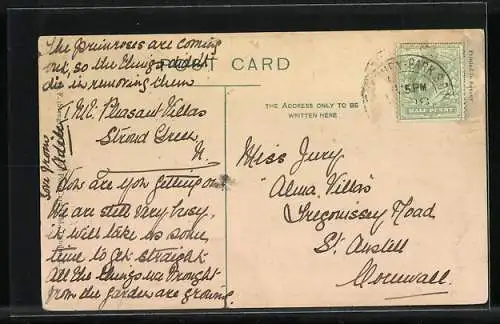 The primroses are coming
out, so the things didnt
die in removing them
POST CARD
THE ADDRESS ONLY TO BE
WRITTEN HERE
PARK
5 PM
HALF PENNY
Mt. Pleasant Villas
Stroud Green
N.
How are you getting on.
We are still very busy,
it will take us some
time to get straight
All the things we brought
from the garden are growing.
Miss Jury,
"Alma Villas"
Tregonissey Road
St. Austell
Cornwall.